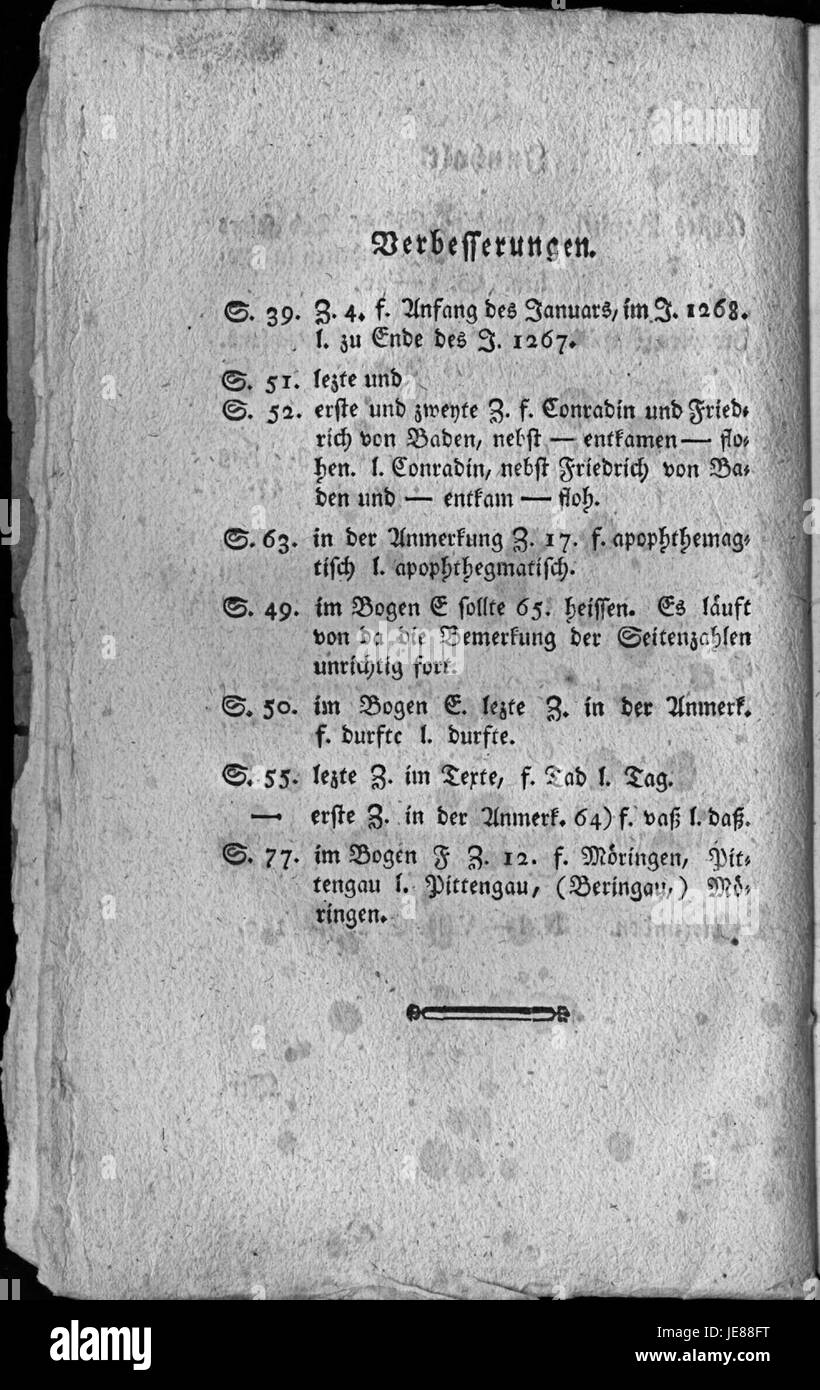 Verbesserungen.
S. 39. Z. 4. f. Anfang des Januars, im J. 1268.
l. zu Ende des J. 1267.
S. 51. lezte und
S. 52. erste und zweyte Z. f. Conradin und Fried-
rich von Baden, nebst — entkamen — flo-
hen. l. Conradin, nebst Friedrich von Ba-
den und — entkam — floh.
S. 63. in der Anmerkung Z. 17. f. apophthemag-
tisch l. apophthegmatisch.
S. 49. im Bogen E sollte 65. heissen. Es läuft
von da die Bemerkung der Seitenzahlen
unrichtig fort.
S. 50. im Bogen E. lezte Z. in der Anmerk.
f. durftc l. durfte.
S. 55. lezte Z. im Texte, f. Tad l. Tag.
— erste Z. in der Anmerk. 64) f. vaß l. daß.
S. 77. im Bogen F Z. 12. f. Möringen, Pit-
tengau l. Pittengau, (Beringau,) Mö-
ringen.
alamy
alamy
alamy
alamy
Image ID: JE88FT
www.alamy.com